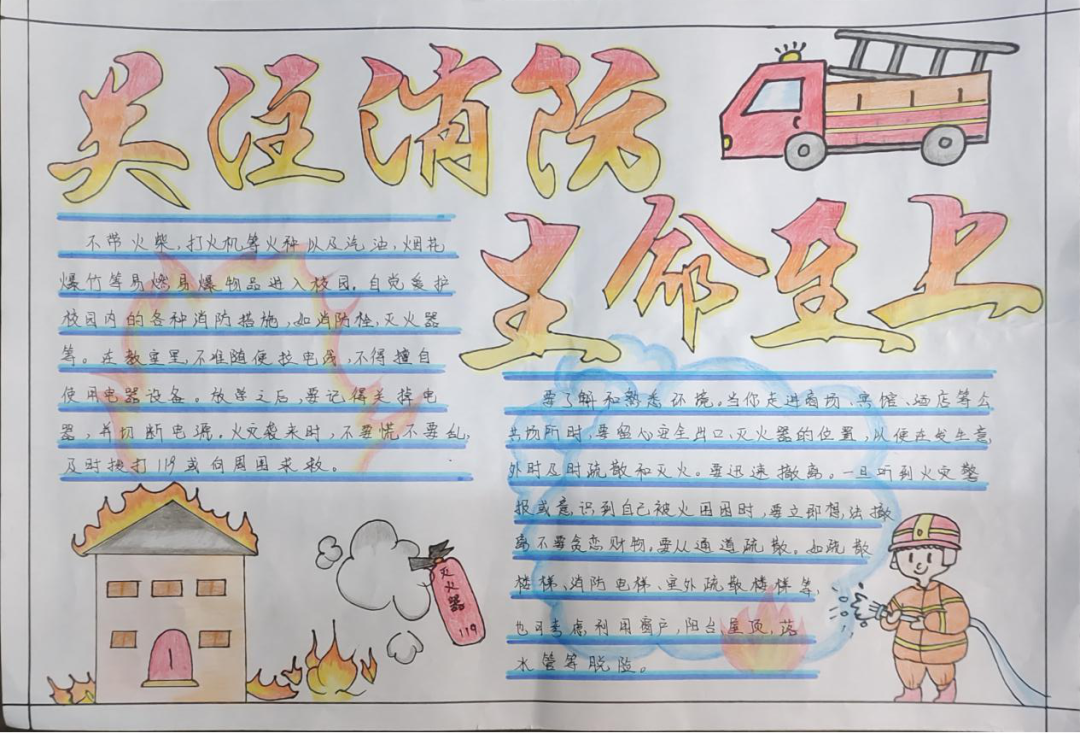 关注消防
生命至上
不带火柴，打火机等火种以及汽油，烟花
爆竹等易燃易爆物品进入校园。自觉爱护
校园内的各种消防措施，如消防栓，灭火器
等。在教室里，不准随便拉电线，不得擅自
使用电器设备。放学之后，要记得关掉电
器，并切断电源。火灾袭来时，不要慌不要乱，
及时拨打119或向周围求救。
要了解和熟悉环境。当你走进商场、宾馆、酒店等公
共场所时，要留心安全出口、灭火器的位置，以便在发生意
外时及时疏散和灭火。要迅速撤离。一旦听到火灾警
报或意识到自己被火围困时，要立即想法撤
离不要贪恋财物。要从通道疏散。如疏散
楼梯、消防电梯、室外疏散楼梯等，
也可考虑利用窗户，阳台，屋顶，落
水管等脱险。
灭火器
119